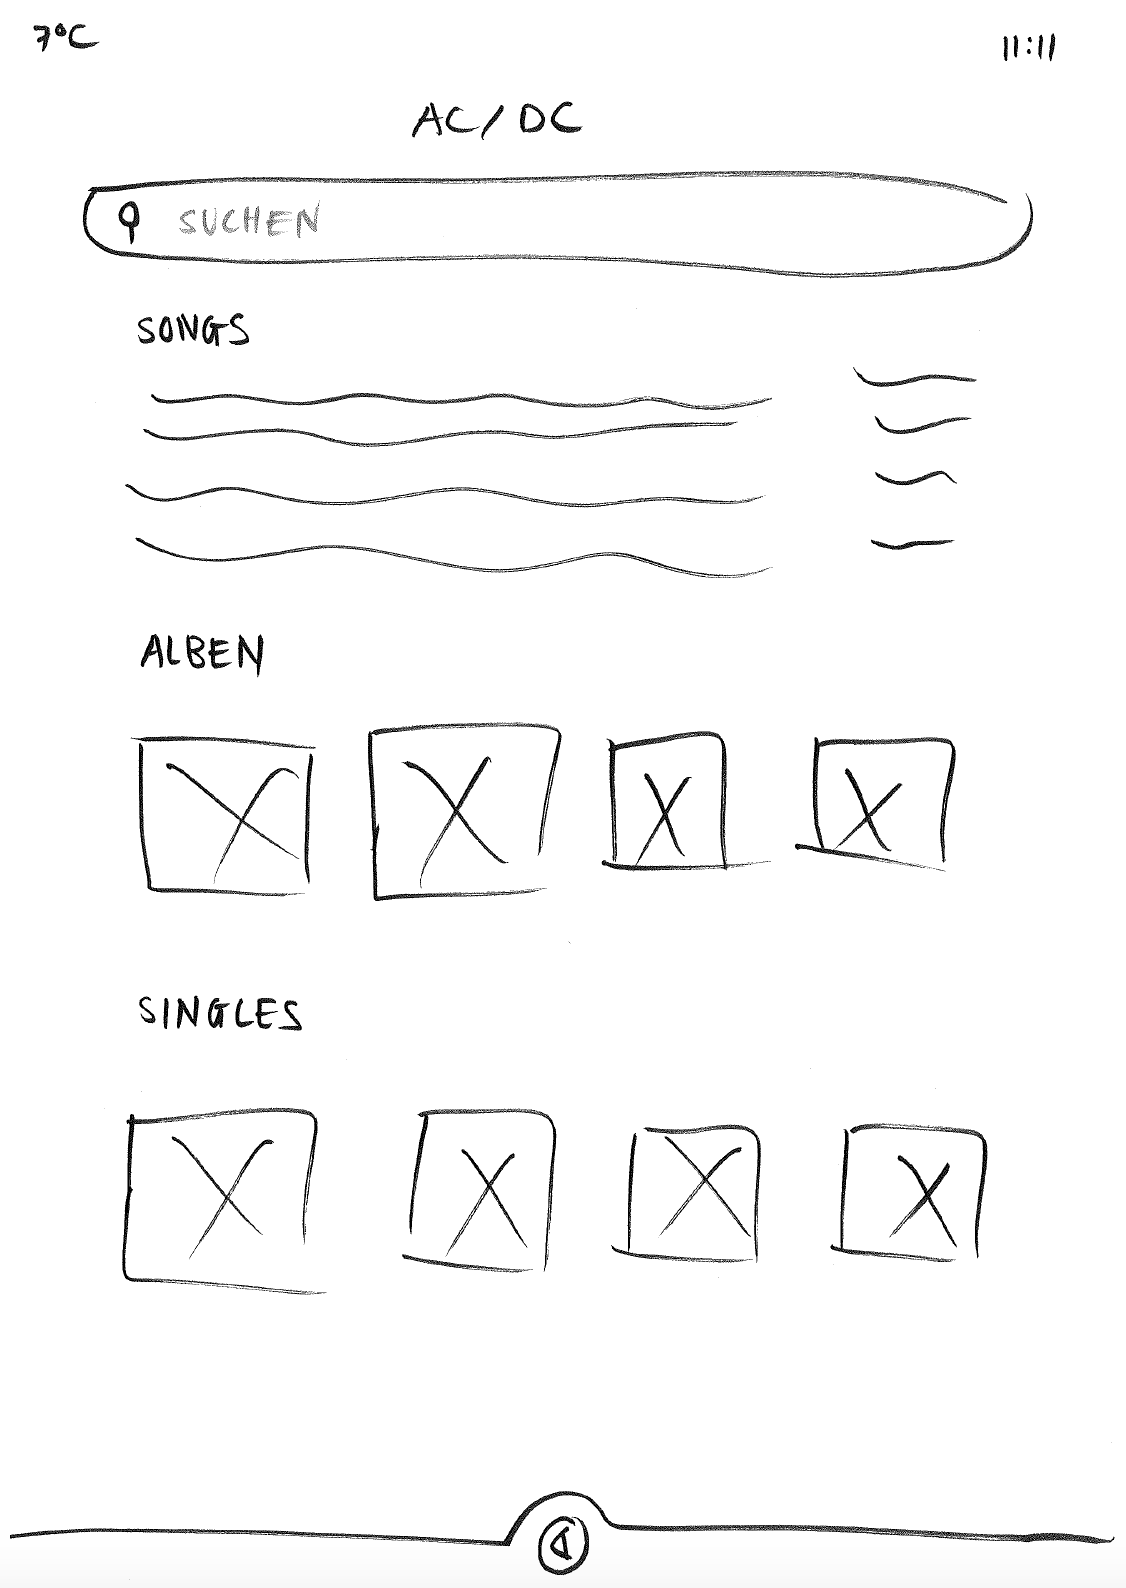 7°C
11:11
AC/DC
SUCHEN
SONGS
ALBEN
SINGLES